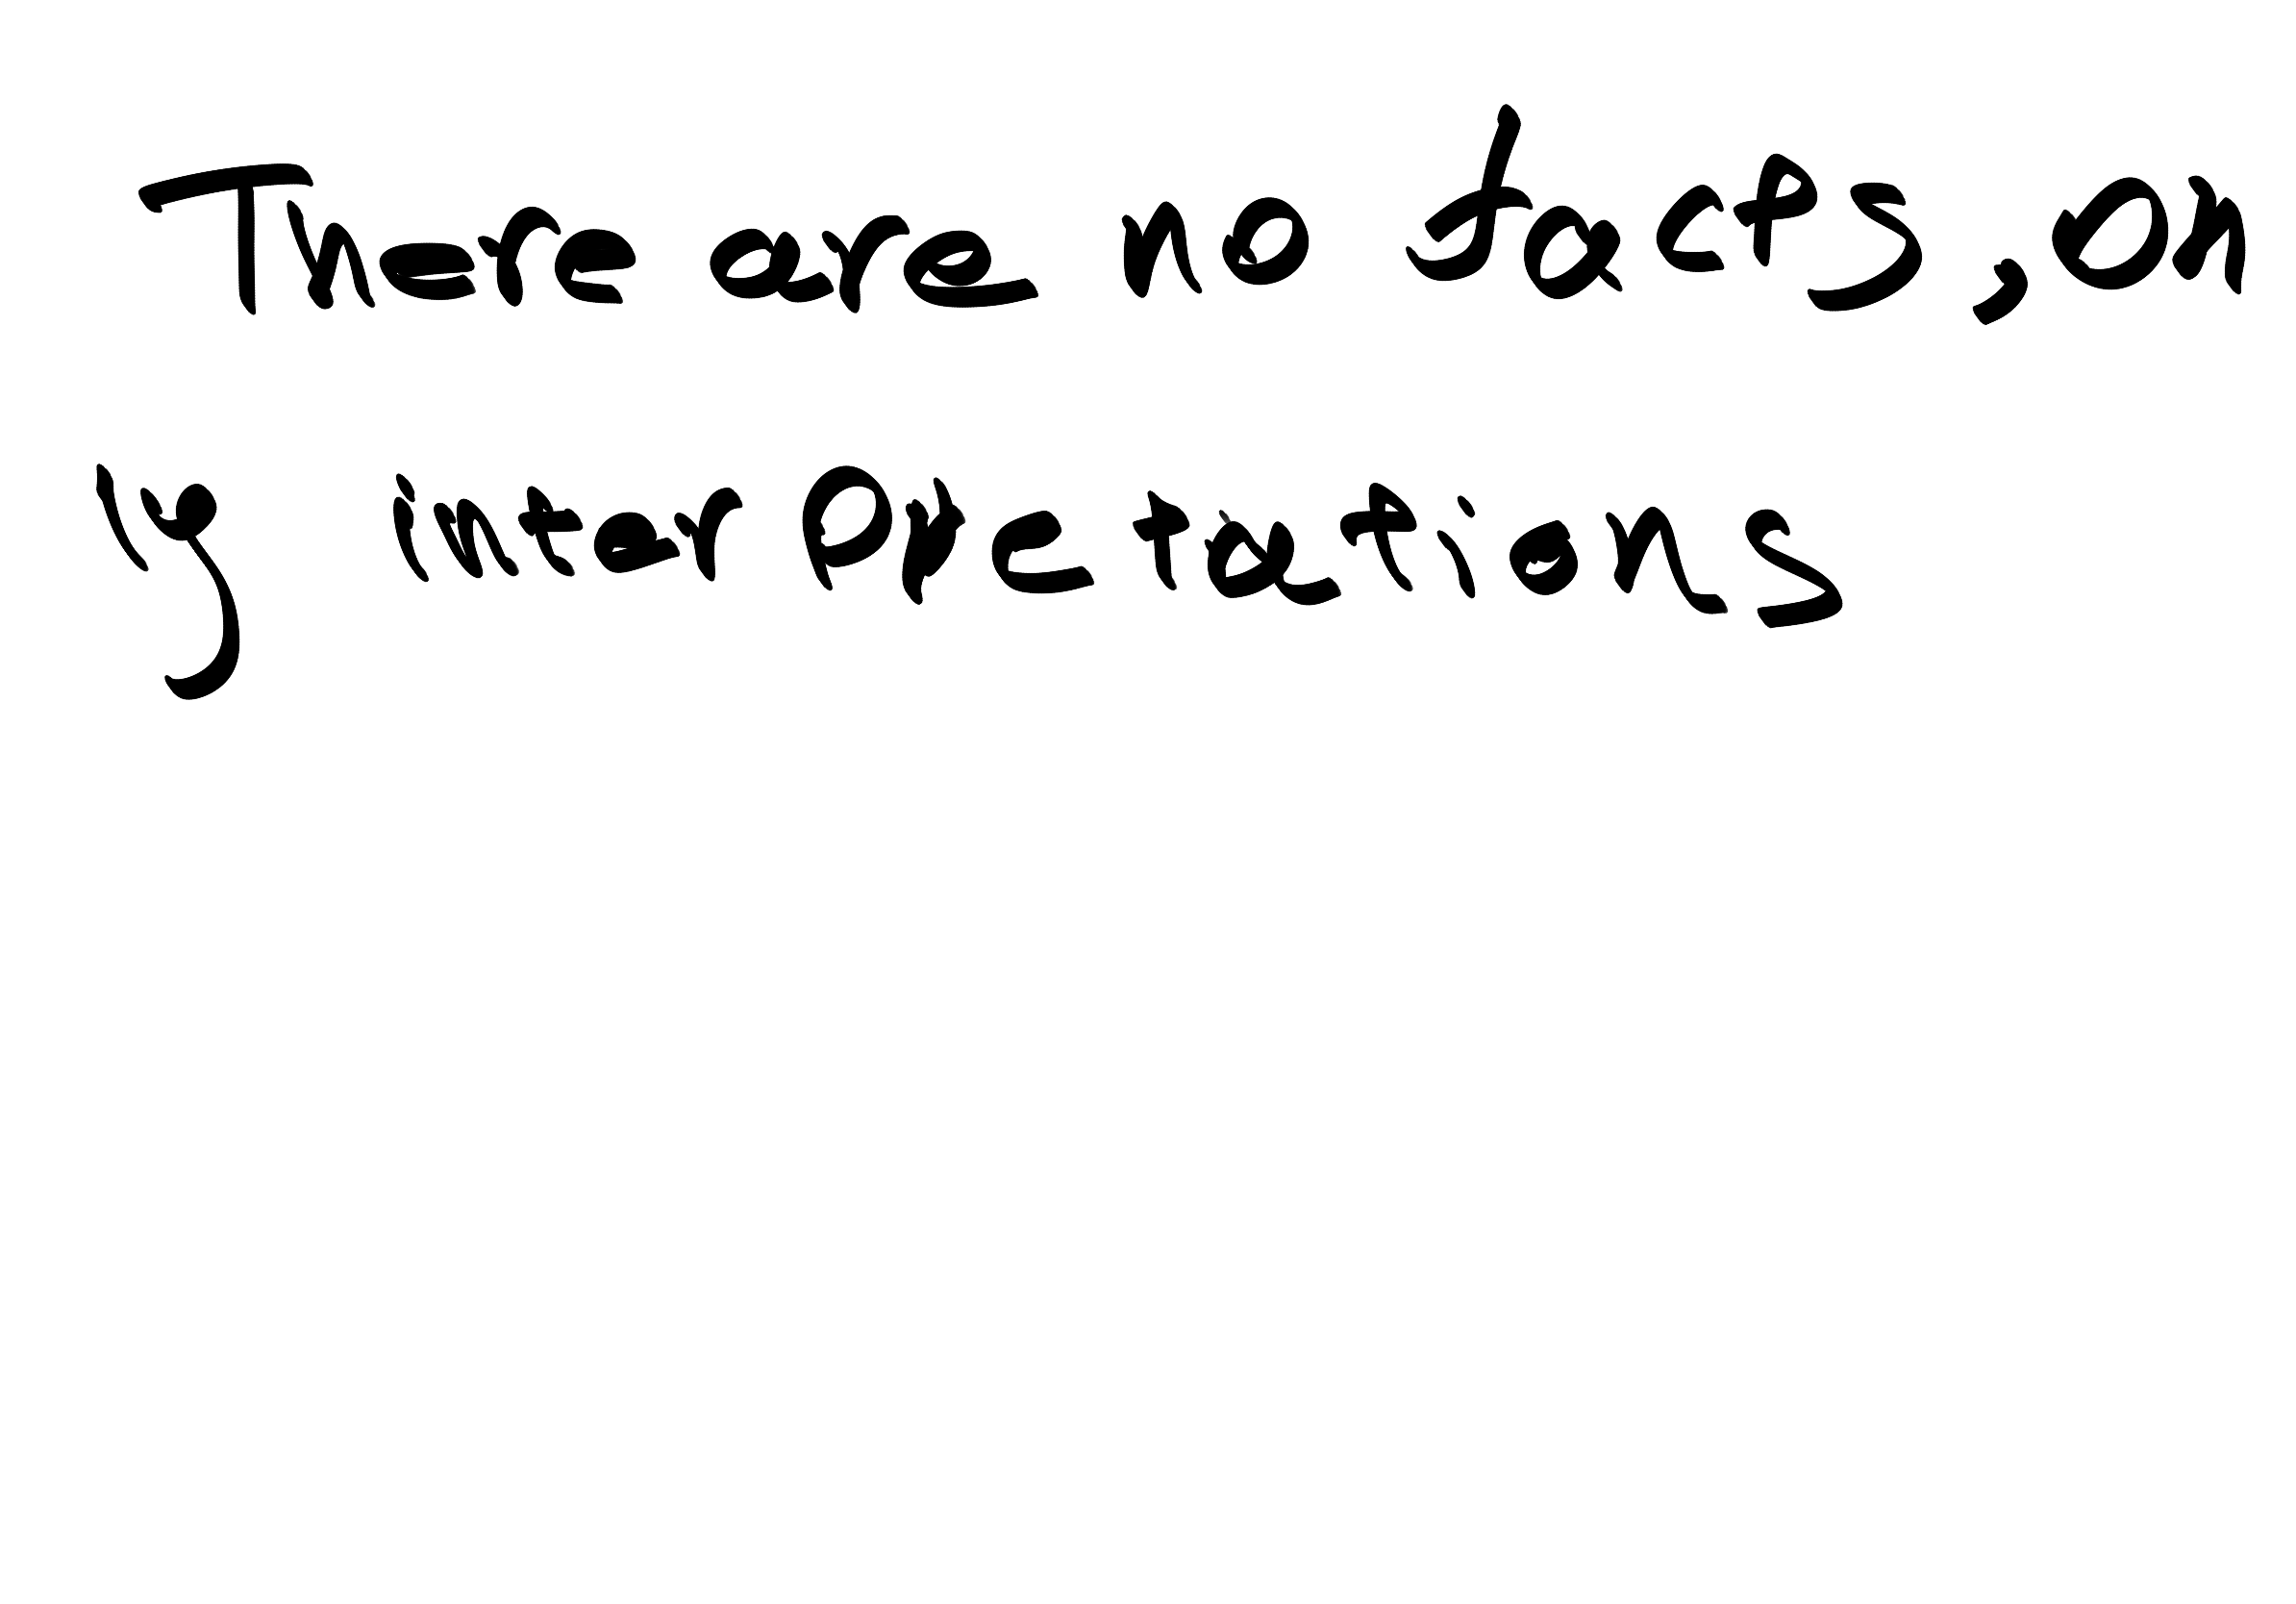 There are no facts, on
ly interpretations